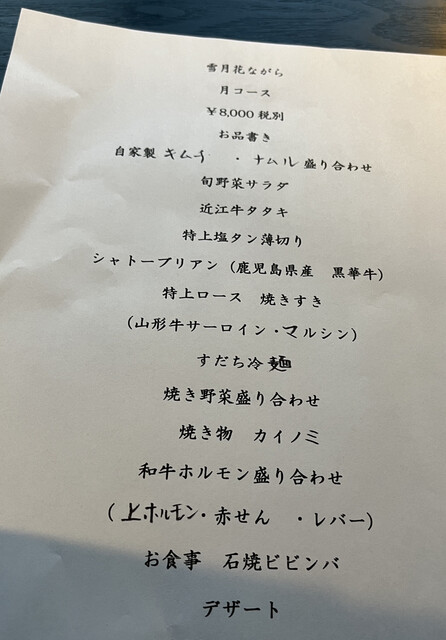 雪月花ながら
月コース
￥8,000 税別
お品書き
自家製 キムチ ・ ナムル 盛り合わせ
旬野菜サラダ
近江牛タタキ
特上塩タン薄切り
シャトーブリアン（鹿児島県産　黒華牛）
特上ロース　焼きすき
（山形牛サーロイン・マルシン）
すだち冷麺
焼き野菜盛り合わせ
焼き物　カイノミ
和牛ホルモン盛り合わせ
（上ホルモン・赤せん　・レバー）
お食事　石焼ビビンバ
デザート